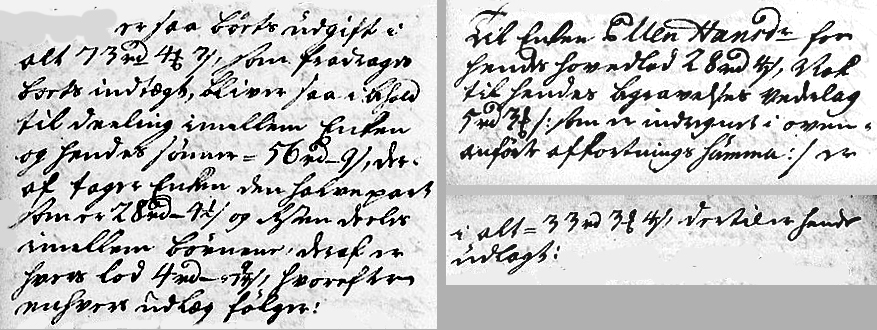 er saa boets udgift i
alt 73 rd 4 ₰ 7 s, som fradrages
boets indtægt, bliver saa i behold
til deeling imellem Enken
og hendes sønner = 56 rd – 9 s, der-
af tager Enken den halve part
som er 28 rd – 4½ s og resten deeles
imellem børnene, deraf er
hvers lod 4 rd – s, hvorefter
enhvers udlæg følger:
Til Enken Ellen Hansdr for
hendes hovedlod 28 rd 4½ s, Nok
til hendes begravelses vederlag
5 rd 3 ₰ /: som er indregnet i oven-
anførte afkortnings summa :/ er
i alt = 33 rd 3 ₰ 4½ s, dertil er hende
udlagt: